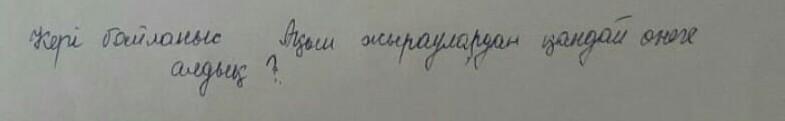 Кері байланыс Ақын жыраулардан қандай өнеге
алдық ?